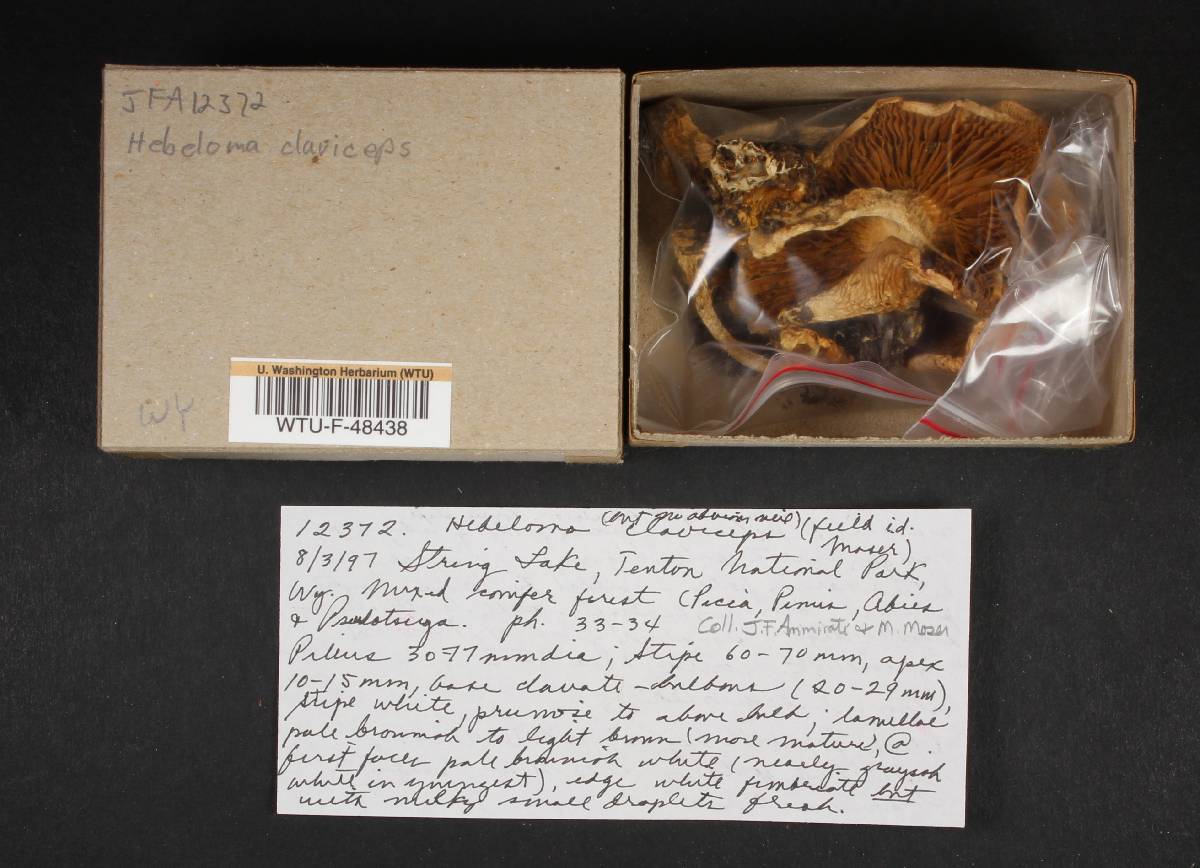 JFA12372
Hebeloma claviceps
WY
U. Washington Herbarium (WTU)
WTU-F-48438
12372. Hebeloma (but no obvious veil) claviceps (field id. Moser)
8/3/97 String Lake, Tenton National Park,
Wy. Mixed conifer forest (Picia, Pinus, Abies
& Pseudotsuga. ph. 33-34 Coll. J.F. Ammirati & M. Moser
Pileus 30-77 mm dia; stipe 60-70 mm, apex
10-15 mm, base clavate-bulbous (20-29 mm),
stipe white, pruinose to above bulb; lamellae
pale brownish to light brown (more mature), @
first faces pale brownish white (nearly grayish
white in youngest), edge white fimbriate but
with milky small droplets fresh.